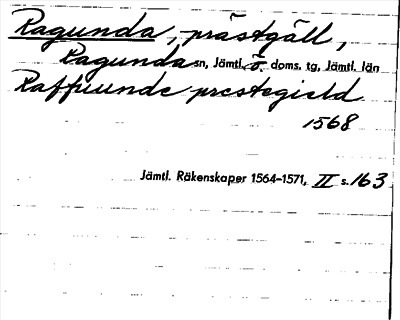 Ragunda, prästgäll,
Ragunda sn, Jämtl. ö. doms. tg, Jämtl. län
Raffuunde prestegield
1568
Jämtl. Räkenskaper 1564-1571, II s. 163